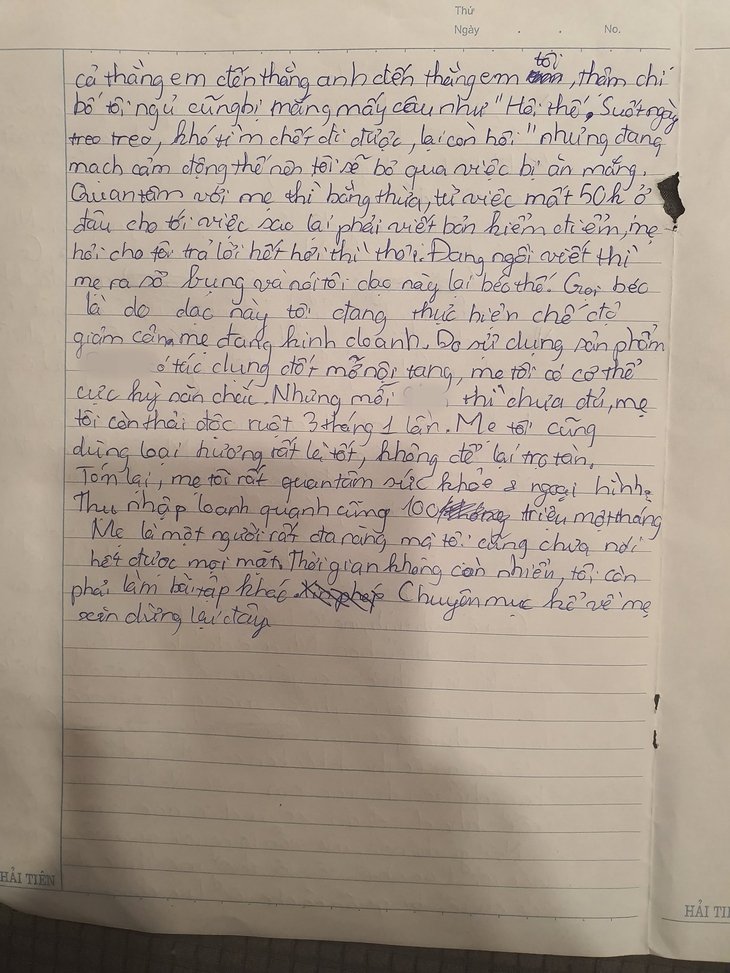 Thứ
Ngày . . No.
cả thằng em đến thằng anh đến thằng em tôi, thậm chí
bố tôi ngủ cũng bị mắng mấy câu như "Hôi thế, Suốt ngày
treo treo, khó tìm chết đi được, lại còn hôi" nhưng đang
mạch cảm động thế nên tôi sẽ bỏ qua việc bị ăn mắng.
Quan tâm với mẹ thì bằng thừa, từ việc mất 50k ở
đâu cho tới việc sao lại phải viết bản kiểm điểm, mẹ
hỏi cho tôi trả lời hết hơi thì thôi. Đang ngồi viết thì
mẹ ra sờ bụng và nói tôi dạo này lại béo thế. Gọi béo
là do dạo này tôi đang thực hiện chế độ
giảm cân mẹ đang kinh doanh. Do sử dụng sản phẩm
ó tác dụng đốt mỡ nội tạng, mẹ tôi có cơ thể
cực kỳ săn chắc. Nhưng mỗi thì chưa đủ, mẹ
tôi còn thải độc ruột 3 tháng 1 lần. Mẹ tôi cũng
dùng loại hương rất là tốt, không để lại tro tàn.
Tóm lại, mẹ tôi rất quan tâm sức khỏe & ngoại hình.
Thu nhập loanh quanh cũng 100 triệu một tháng
Mẹ là một người rất đa năng mà tôi cũng chưa nói
hết được mọi mặt. Thời gian không còn nhiều, tôi còn
phải làm bài tập khác. Chuyên mục kể về mẹ
xin dừng lại đây.
HẢI TIẾN
HẢI TIẾ